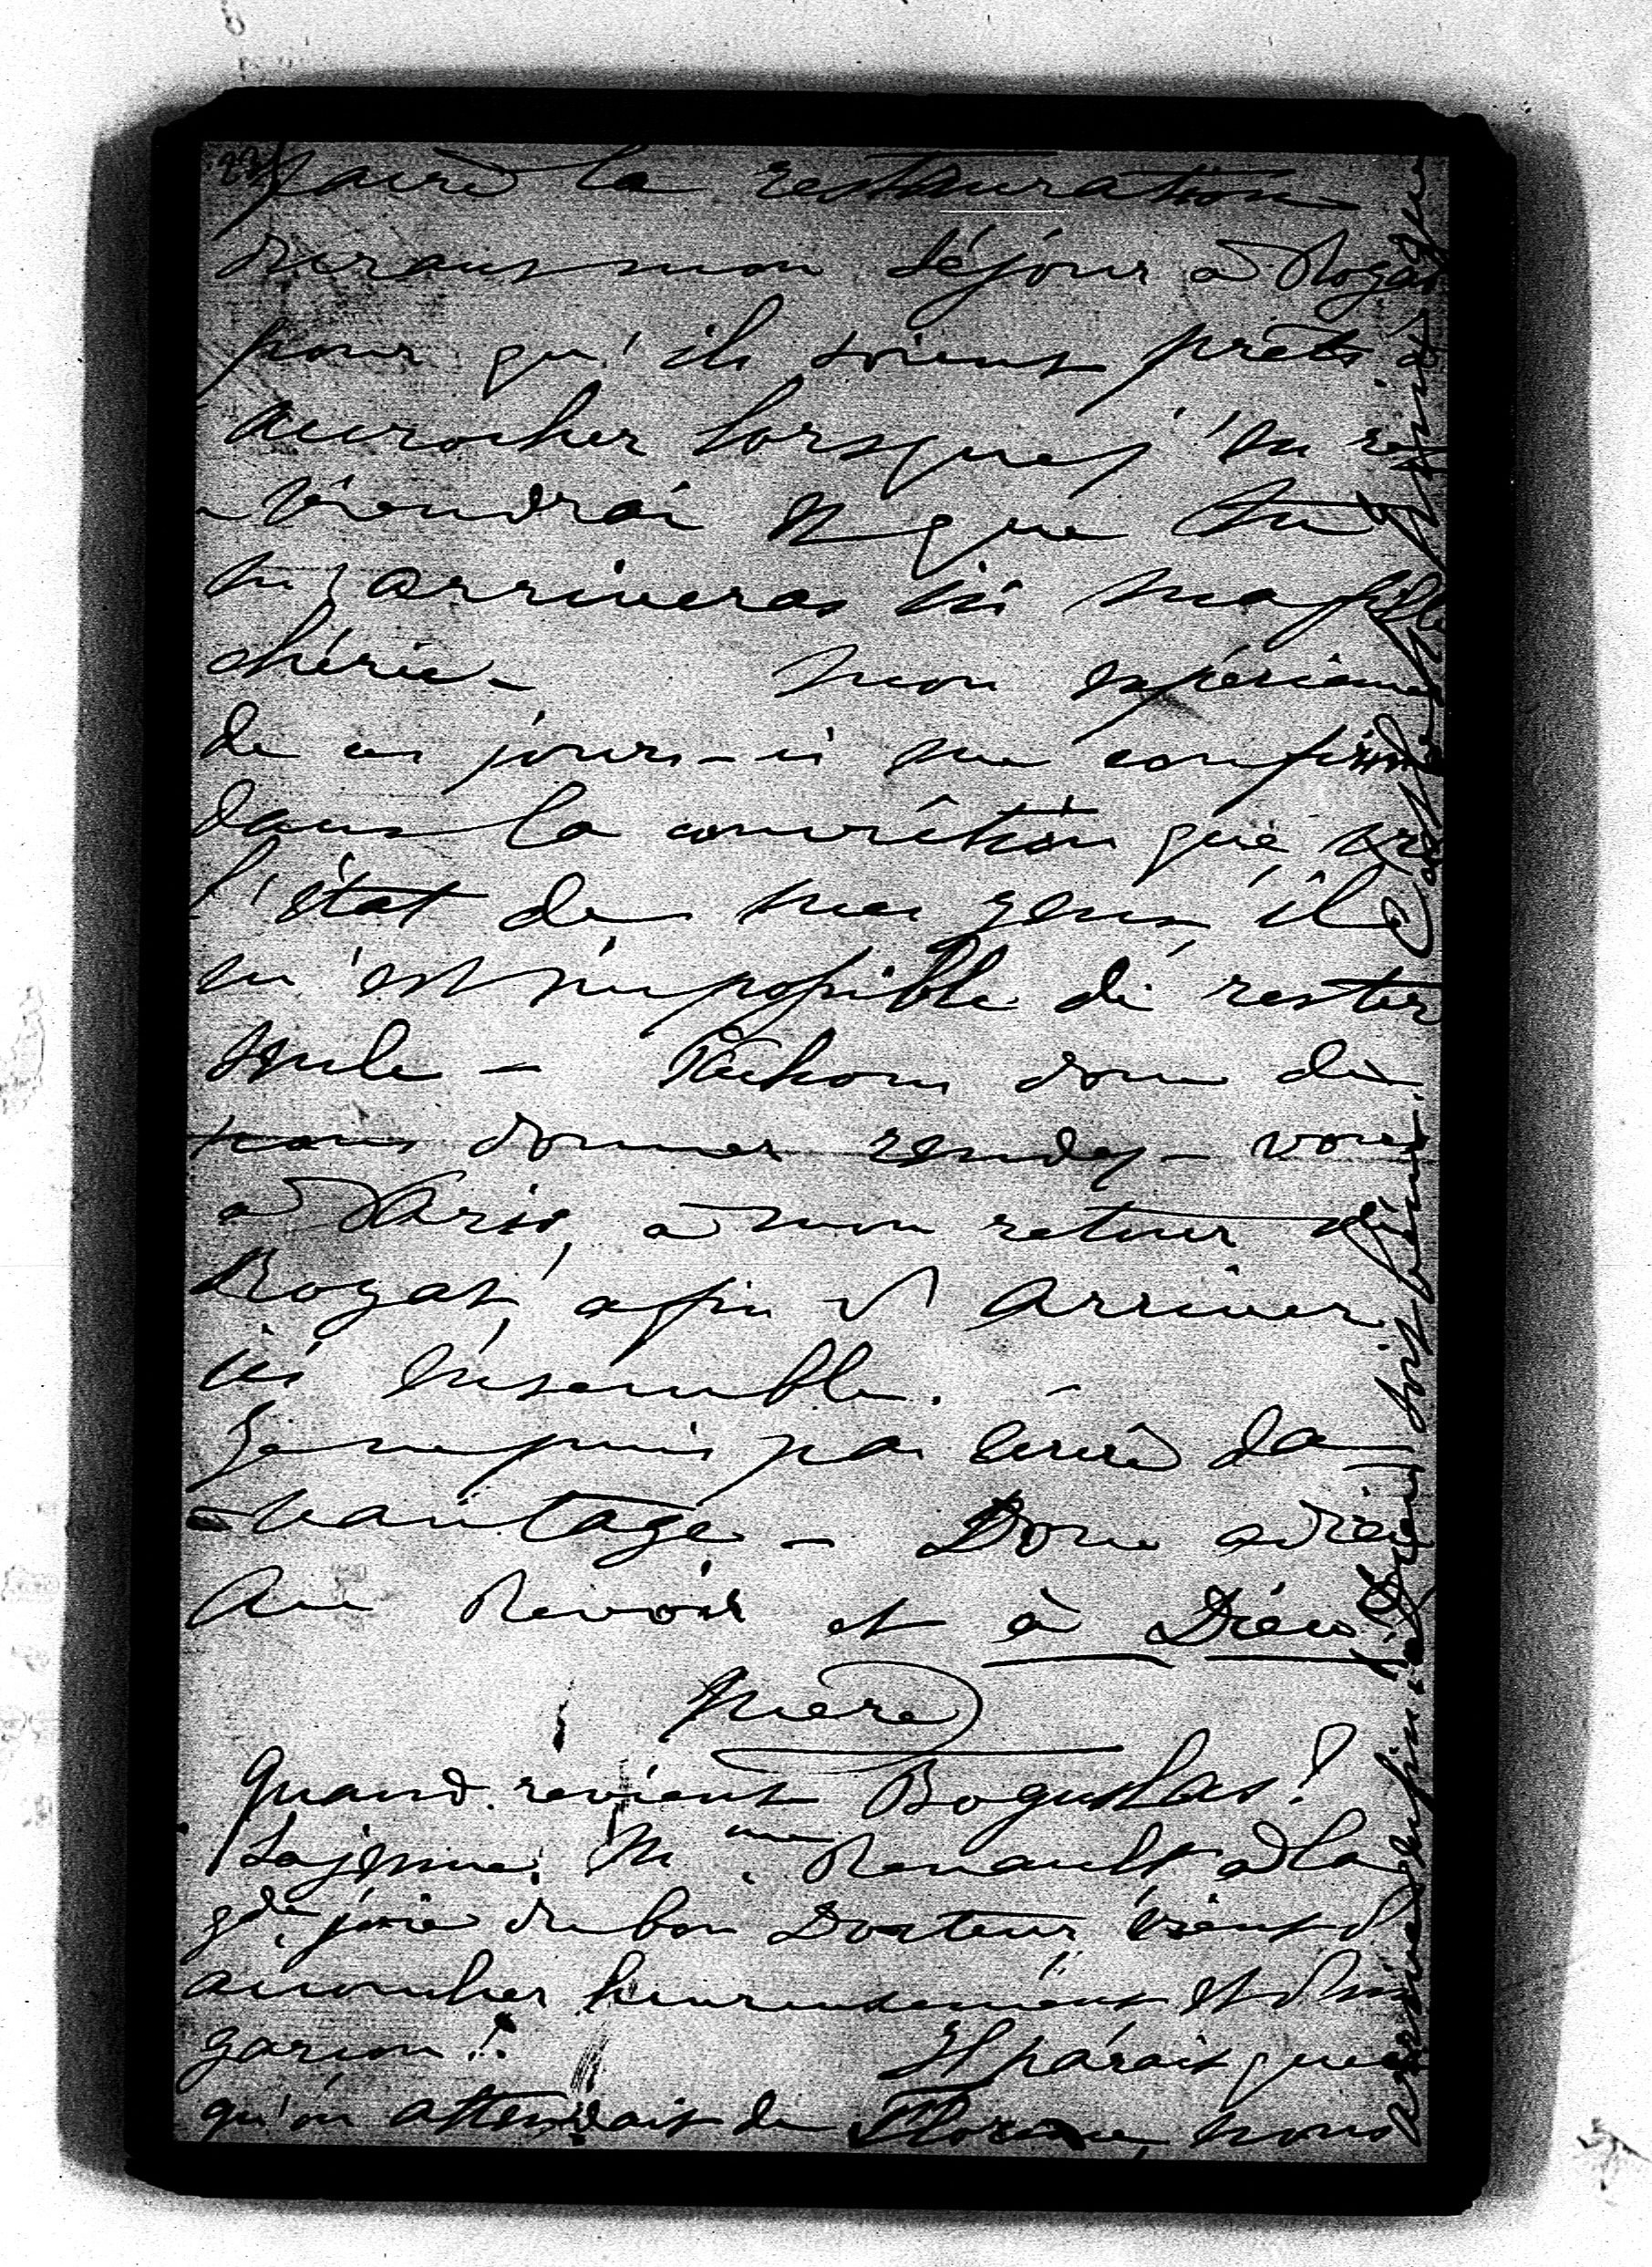 faire la restauration
durant mon séjour à Royat
pour qu'ils soient prêts à
accrocher lorsque j'en re
-viendrai et que tu
m'arriveras ici ma fille
chérie - Mon expérience
de ces jours-ci me confirme
dans la conviction que vu
l'état de mes yeux il
m'est impossible de rester
seule - Tâchons donc de
nous donner rendez-vous
à Paris, à mon retour de
Royat, afin d'arriver
ici ensemble.
Je ne puis pas écrire da
-vantage - Donc adieu
au revoir et à Dieu
Mère
Quand revient Boguslas?
La jeune Mme Renault à la
gde joie du bon Docteur vient d'
accoucher heureusement et d'un
garçon!. Il parait que
qu'on attendait de Florence, nous
arrive enfin! Dieu soit béni.